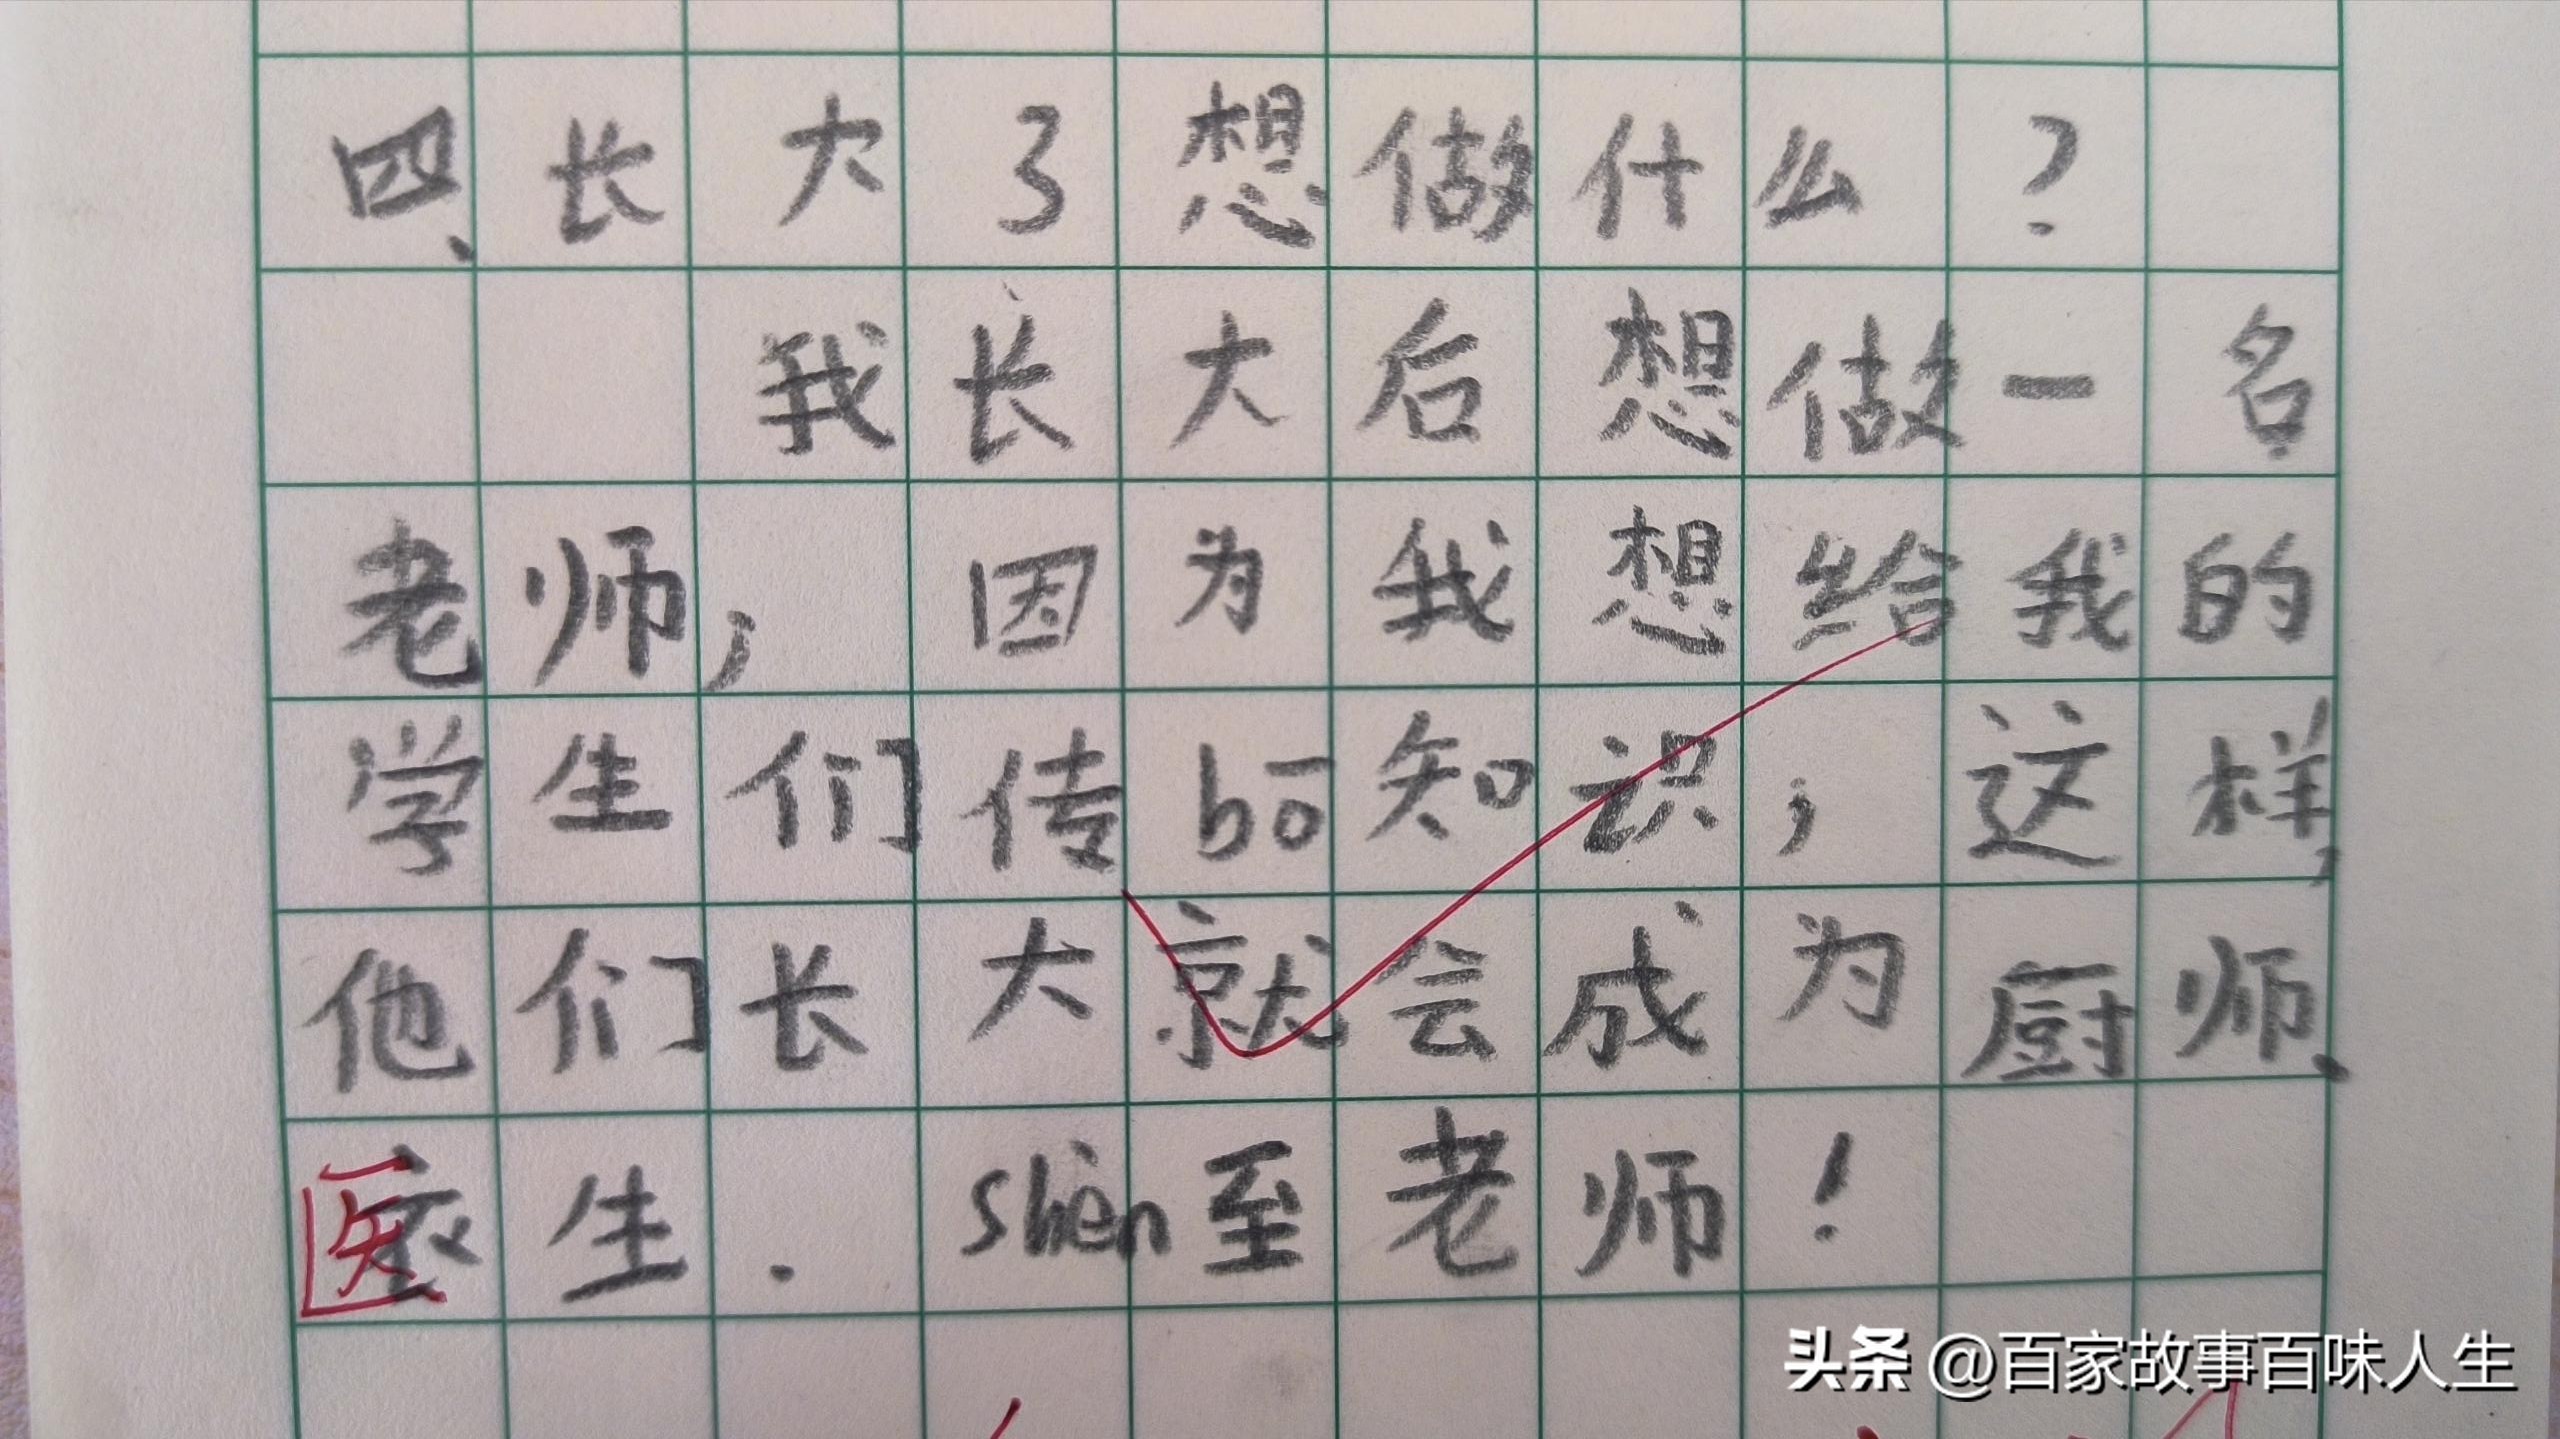 四、长大了想做什么?
我长大后想做一名
老师,因为我想给我的
学生们传bō知识,这样,
他们长大就会成为厨师、
医生.shèn至老师!
头条 @百家故事百味人生